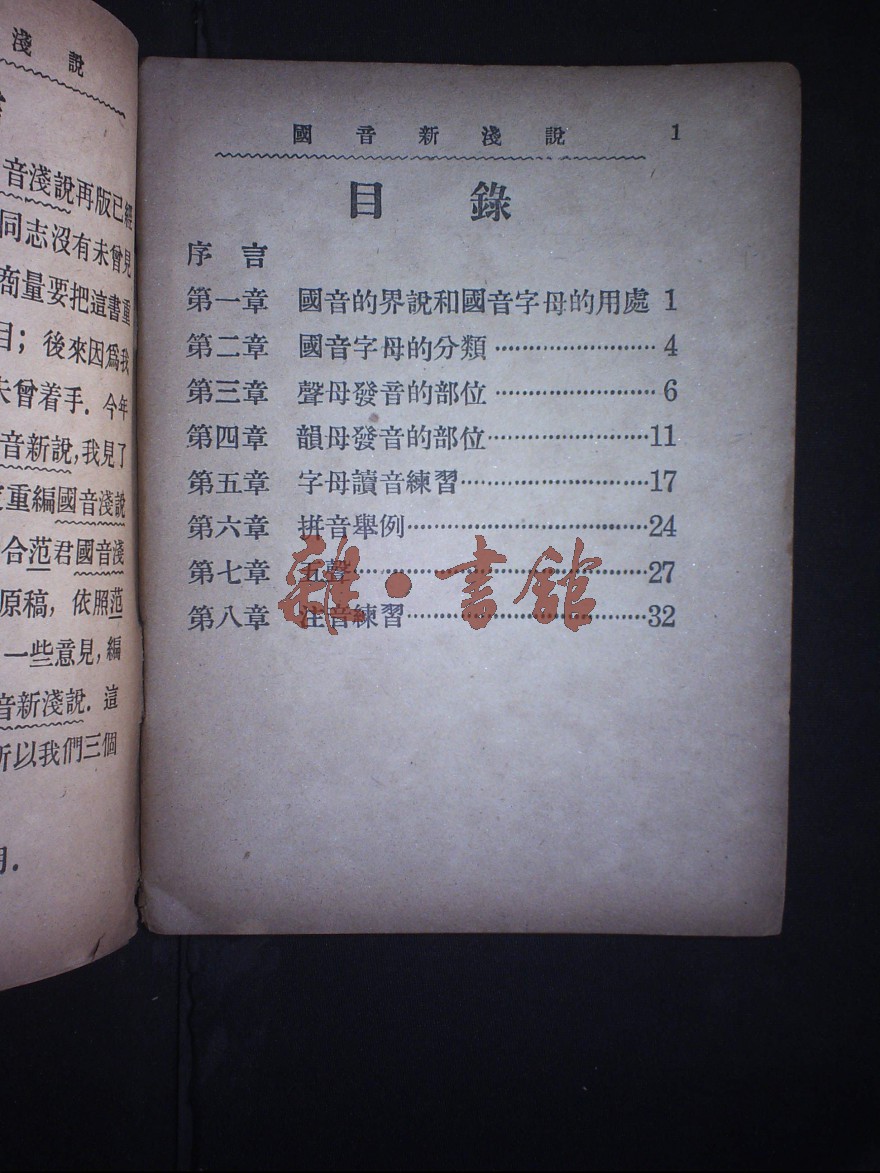 淺說
音淺說再版已經
同志沒有未曾見
商量要把這書重
目；後來因爲我
未曾着手．今年
音新說，我見了
重編國音淺說
合范君國音淺
原稿，依照范
一些意見，編
音新淺說．這
所以我們三個
月．
國音新淺說 1
目錄
序言
第一章 國音的界說和國音字母的用處 1
第二章 國音字母的分類……………………4
第三章 聲母發音的部位……………………6
第四章 韻母發音的部位……………………11
第五章 字母讀音練習………………………17
第六章 拼音舉例……………………………24
第七章 五聲…………………………………27
第八章 注音練習……………………………32
雜·書館